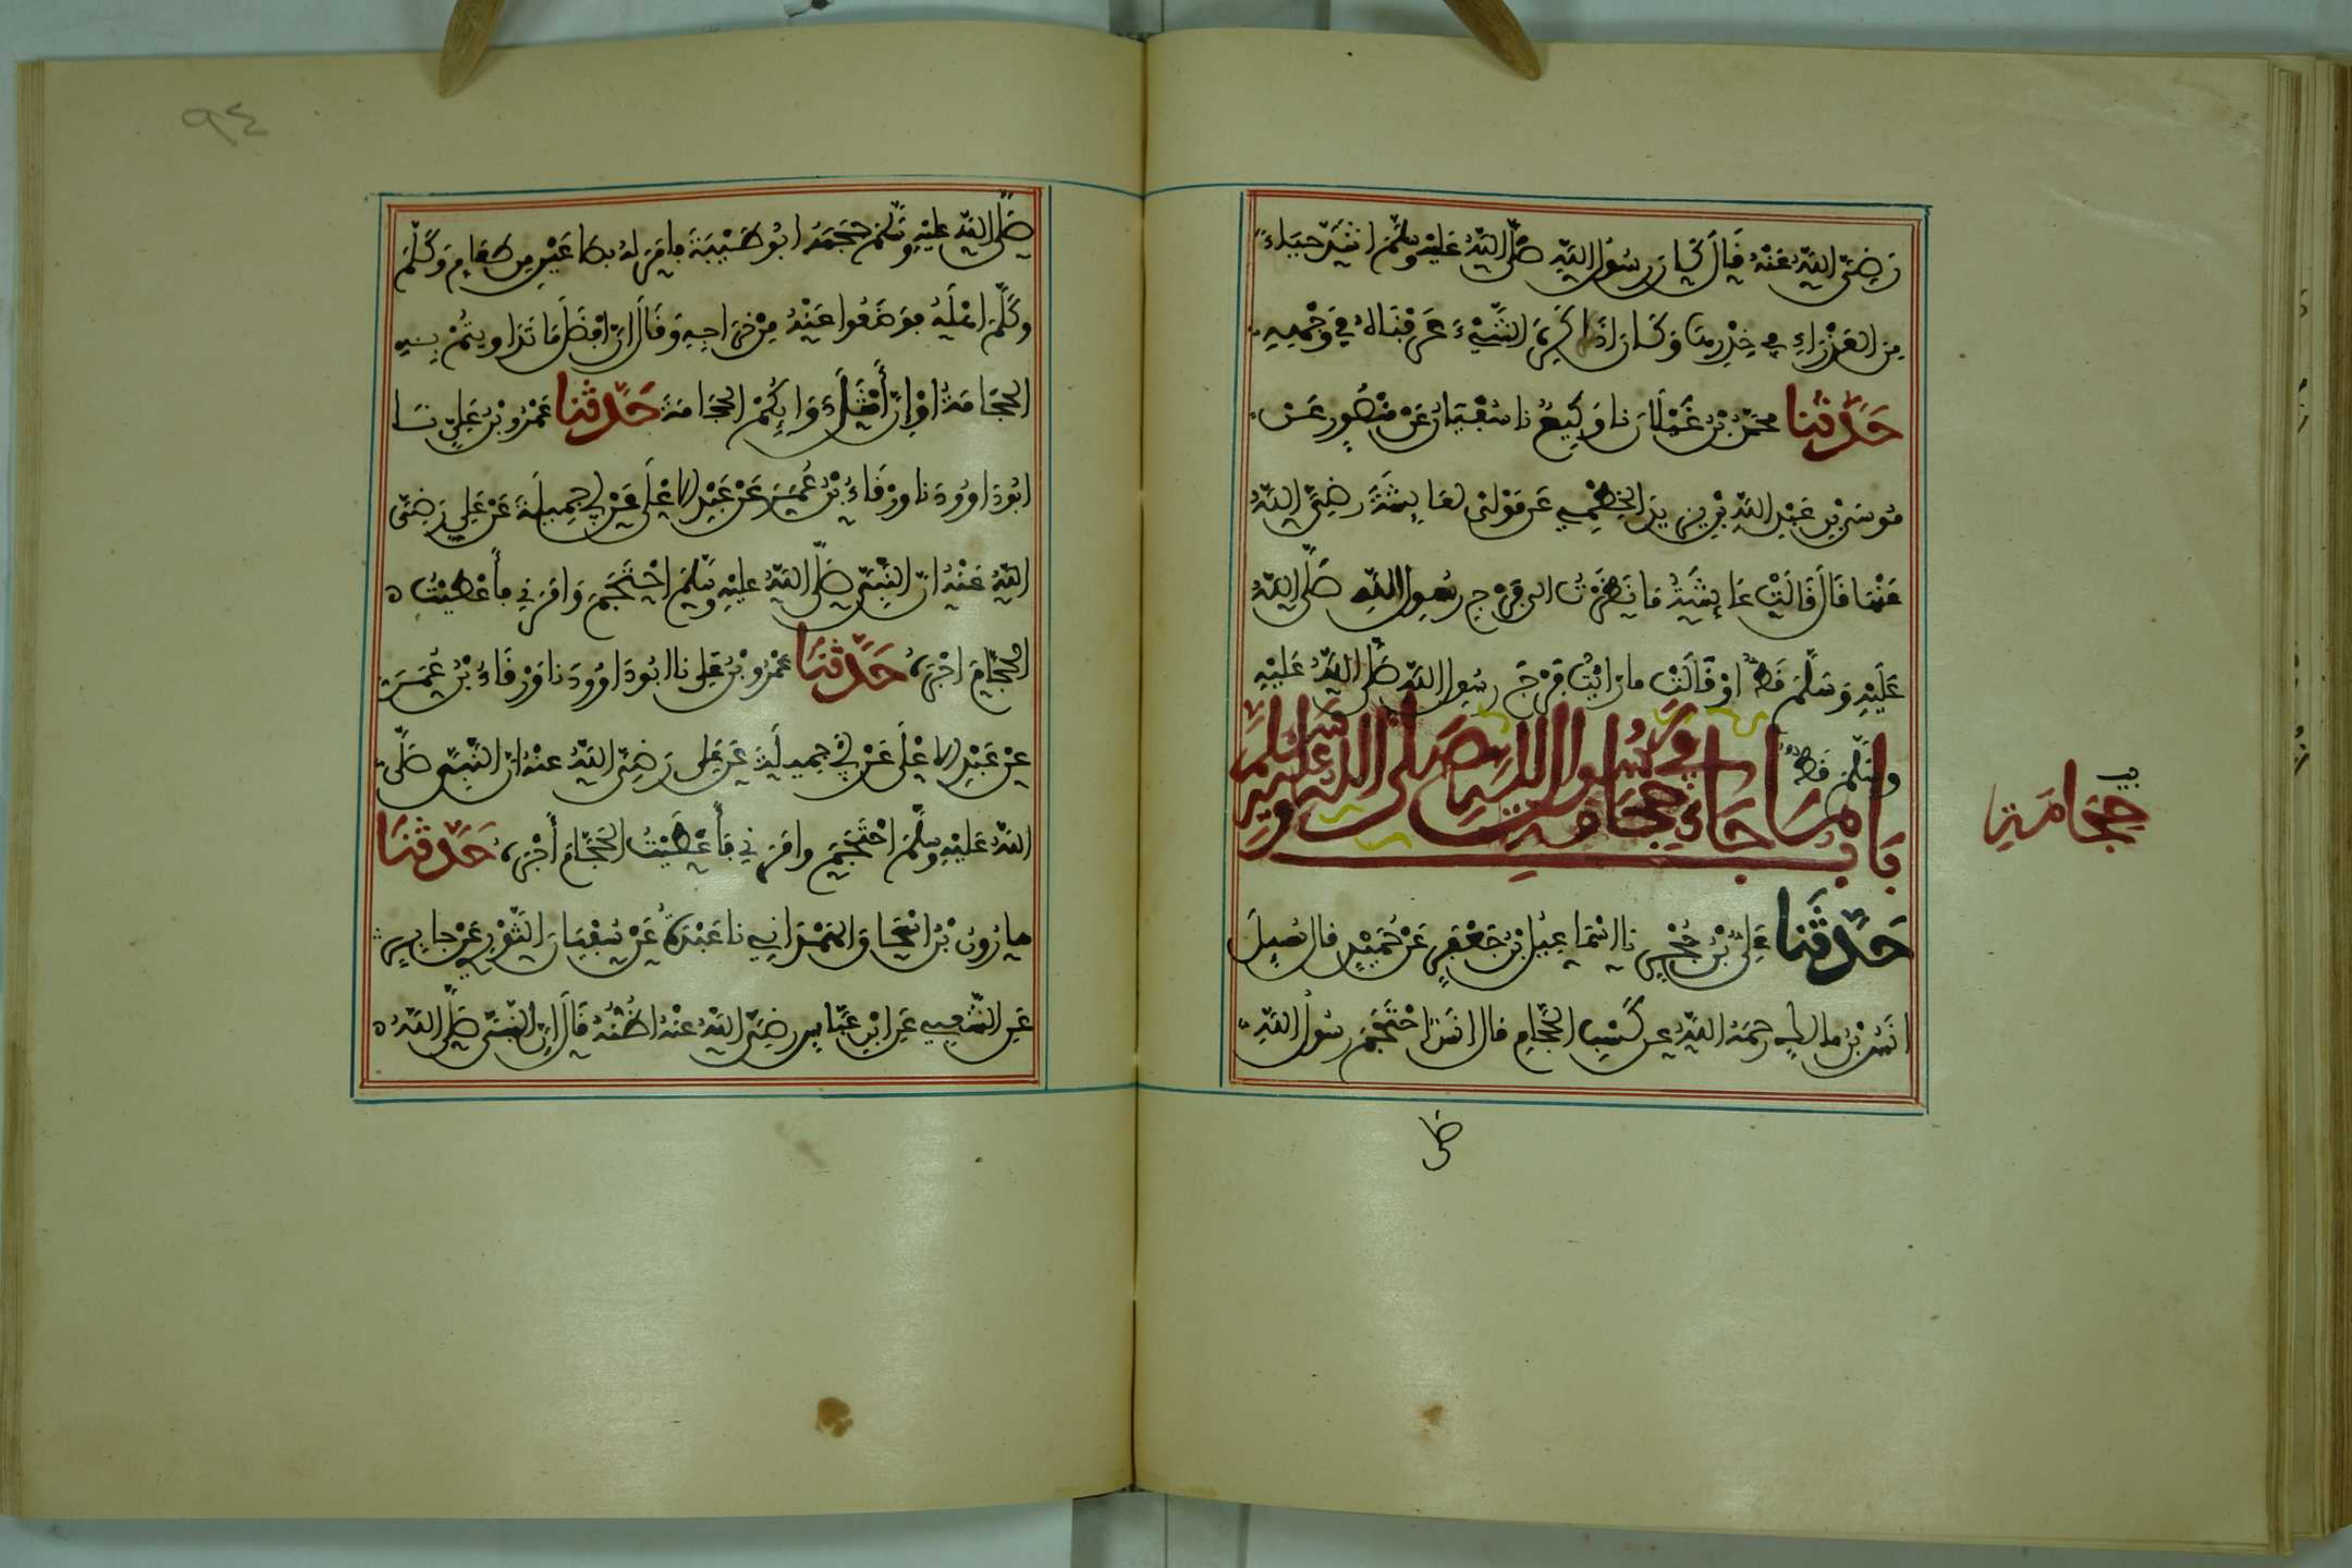 رَضِيَ اللَّهُ عَنْهُ قَالَ كَانَ رَسُولُ اللَّهِ صَلَّى اللَّهُ عَلَيْهِ وَسَلَّمَ اشَدَّ حَيَاءً
مِنَ الْعَذْرَاءِ فِي خِدْرِهَا وَكَانَ اذَا كَرِهَ الشَّيْءَ عَرَفْنَاهُ فِي وَجْهِهِ
حَدَّثَنَا مَحْمُودُ بْنُ غَيْلَانَ نا وَكِيعٌ نا سُفْيَانُ عَنْ مَنْصُورٍ عَنْ
مُوسَى بْنِ عَبْدِ اللَّهِ بْنِ يَزِيدَ الْخَطْمِيِّ عَنْ مَوْلًى لِعَائِشَةَ رَضِيَ اللَّهُ
عَنْهَا قَالَ قَالَتْ عَائِشَةُ مَا نَظَرْتُ الى فَرْجِ رَسُولِ اللَّهِ صَلَّى اللَّهُ
عَلَيْهِ وَسَلَّمَ قَطُّ اوْ قَالَتْ مَا رَايْتُ فَرْجَ رَسُولِ اللَّهِ صَلَّى اللَّهُ عَلَيْهِ
وَسَلَّمَ قَطُّ
بَابُ مَا جَاءَ فِي حِجَامَةِ رَسُولِ اللَّهِ صَلَّى اللَّهُ عَلَيْهِ وَسَلَّمَ
حِجَامَةِ
حَدَّثَنَا عَلِيُّ بْنُ حُجْرٍ نا اسْمَاعِيلُ بْنُ جَعْفَرٍ عَنْ حُمَيْدٍ قَالَ سُيِلَ
انَسُ بْنُ مَالِكٍ رَحِمَهُ اللَّهُ عَنْ كَسْبِ الْحَجَّامِ فَقَالَ انَسٌ احْتَجَمَ رَسُولُ اللَّهِ
صَلَّى
٩٤
صَلَّى اللَّهُ عَلَيْهِ وَسَلَّمَ حَجَمَهُ ابُو طَيْبَةَ فَامَرَ لَهُ بِصَاعَيْنِ مِنْ طَعَامٍ وَكَلَّمَ
وَكَلَّمَ اهْلَهُ فَوَضَعُوا عَنْهُ مِنْ خَرَاجِهِ وَقَالَ انَّ افْضَلَ مَا تَدَاوَيْتُمْ بِهِ
الْحِجَامَةُ اوْ إِنَّ أَمْثَلَ دَوَائِكُمُ الْحِجَامَةَ حَدَّثَنَا عَمْرُو بْنُ عَلِيٍّ نَا
ابُو دَاوُودَ نا وَرْقَاءُ بْنُ عُمَرَ عَنْ عَبْدِ الاعْلَى عَنْ أَبِي جَمِيلَةَ عَنْ عَلِيٍّ رَضِيَ
اللَّهُ عَنْهُ انَّ النَّبِيَّ صَلَّى اللَّهُ عَلَيْهِ وَسَلَّمَ احْتَجَمَ وَامَرَنِي فَأَعْطَيْتُ
الْحَجَّامَ اجْرَهُ حَدَّثَنَا عَمْرُو بْنُ عَلِيٍّ نا ابُو دَاوُودَ نا وَرْقَاءُ بْنُ عُمَرَ
عَنْ عَبْدِ الاعْلَى عَنْ أَبِي جَمِيلَةَ عَنْ عَلِيٍّ رَضِيَ اللَّهُ عَنْهُ انَّ النَّبِيَّ صَلَّى
اللَّهُ عَلَيْهِ وَسَلَّمَ احْتَجَمَ وَامَرَنِي فَأَعْطَيْتُ الْحَجَّامَ أَجْرَهُ حَدَّثَنَا
هَارُونُ بْنُ اسْحَاقَ الْهَمْدَانِي نا عَبْدَةُ عَنْ سُفْيَانَ الثَّوْرِيِّ عَنْ جَابِرٍ
عَنِ الشَّعْبِيِّ عَنِ ابْنِ عَبَّاسٍ رَضِيَ اللَّهُ عَنْهُ اظُنُّهُ قَالَ انَّ النَّبِيَّ صَلَّى اللَّهُ